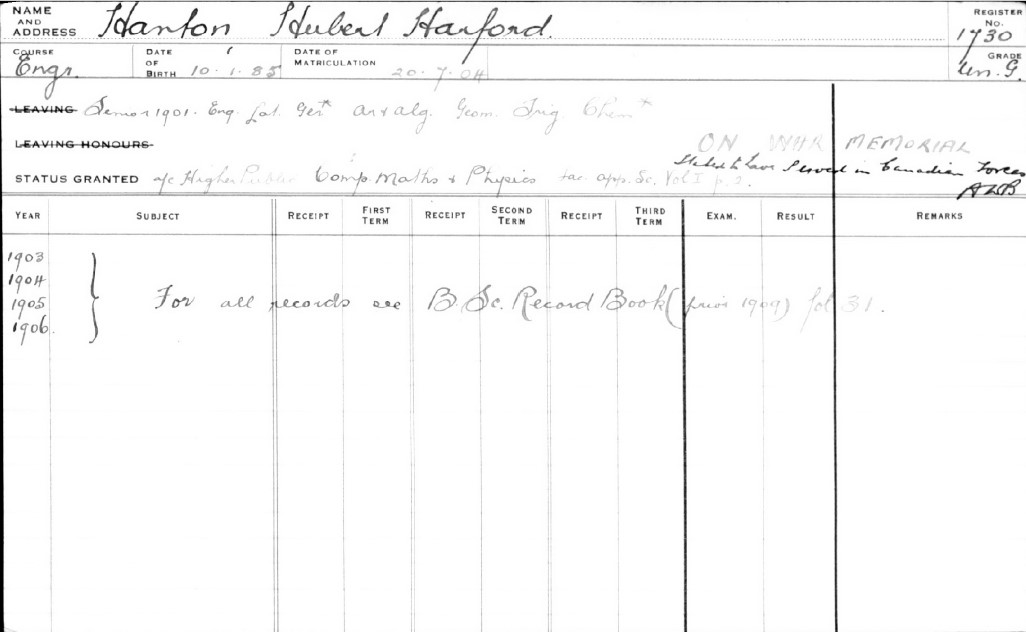 NAME AND ADDRESS Hanton Hubert Harford. REGISTER No. 1730
COURSE Engr. DATE OF BIRTH 10.1.85 DATE OF MATRICULATION 20.7.04 GRADE Un.G.
LEAVING Senior 1901. Eng. Lat. Ger* Ar & Alg. Geom. Trig. Chem*
LEAVING HONOURS ON WAR MEMORIAL
Stated to have served in Canadian Forces
STATUS GRANTED a/c Higher Public Comp. Maths & Physics for App. Sc. Vol I p. 2.
YEAR SUBJECT RECEIPT FIRST TERM RECEIPT SECOND TERM RECEIPT THIRD TERM EXAM. RESULT REMARKS
1903
1904
1905 For all records see B. Sc. Record Book (prior 1909) fol 31.
1906.